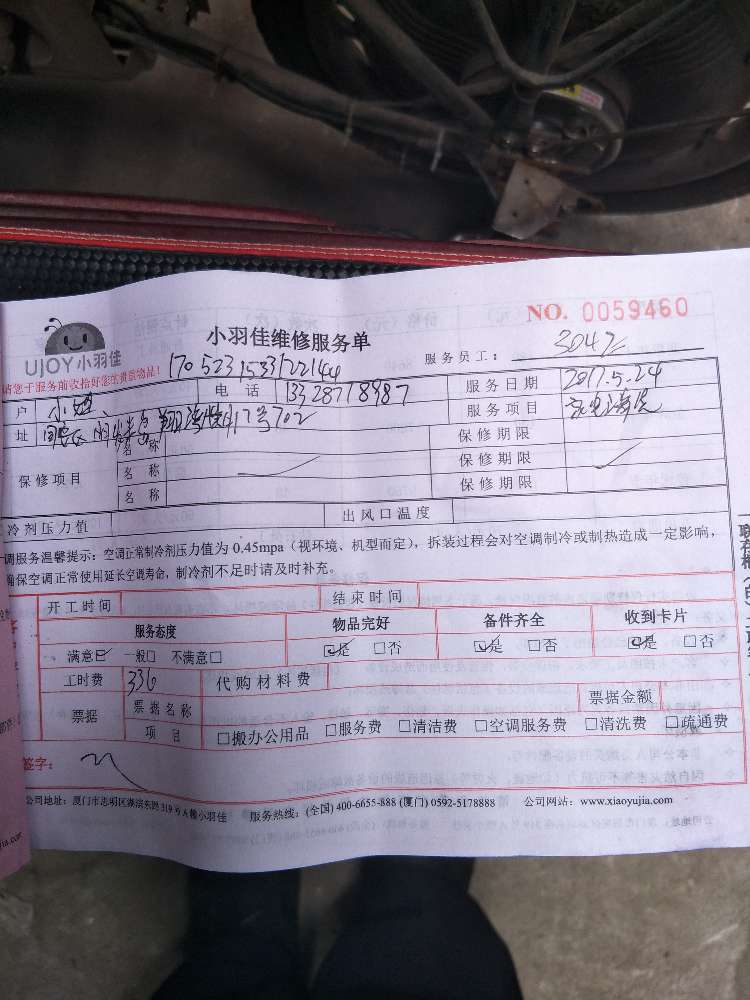 NO. 0059460
UJOY小羽佳
小羽佳维修服务单
服务员工： 3047
请您于服务前收拾好您的贵重物品！
1705231533122144
户 小姐 电话 13328718987 服务日期 2017.5.24
址 17号702 服务项目 家电清洗
保修项目 名称 保修期限
名称 保修期限
名称 保修期限
冷剂压力值 出风口温度
调服务温馨提示：空调正常制冷剂压力值为 0.45mpa（视环境、机型而定），拆装过程会对空调制冷或制热造成一定影响，
确保空调正常使用延长空调寿命，制冷剂不足时请及时补充。
开工时间 结束时间
服务态度 物品完好 备件齐全 收到卡片
满意☑ 一般□ 不满意□ ☑是 □否 ☑是 □否 ☑是 □否
工时费 336 代购材料费
票据 票据名称 票据金额
项目 □搬办公用品 □服务费 □清洁费 □空调服务费 □清洗费 □疏通费
签字：
公司地址：厦门市思明区湖滨东路319号A幢小羽佳 服务热线：(全国) 400-6655-888 (厦门) 0592-5178888 公司网站：www.xiaoyujia.com